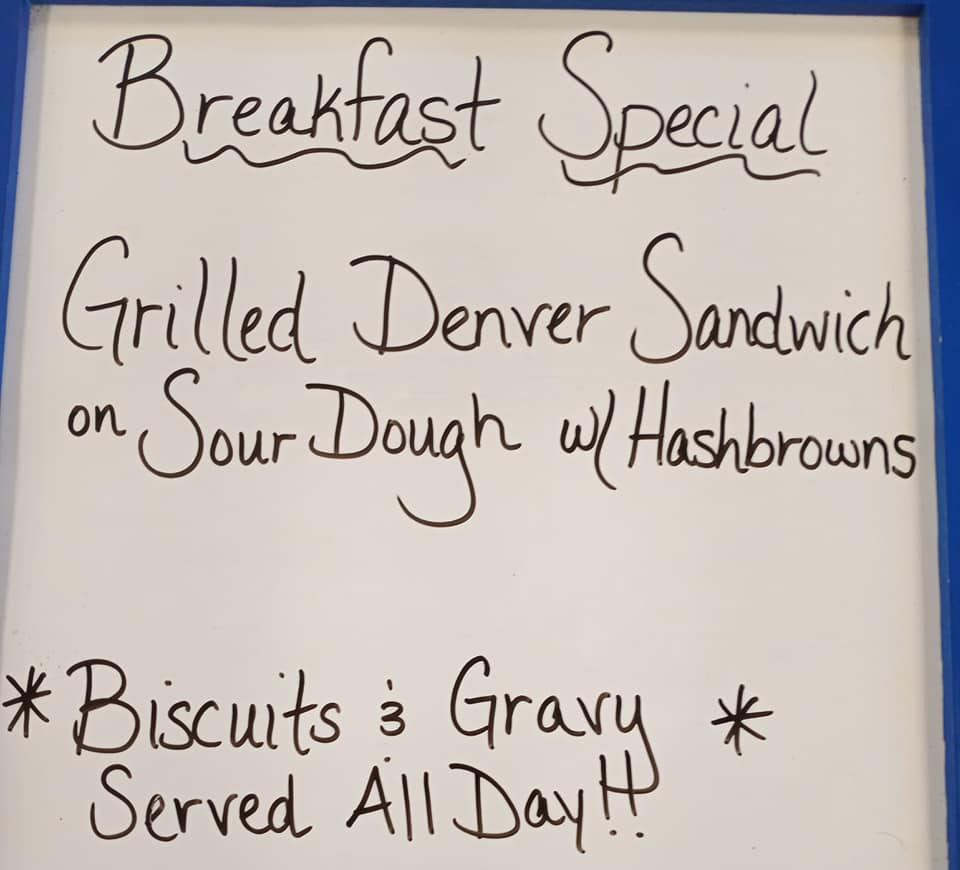 Breakfast Special
Grilled Denver Sandwich
on Sour Dough w/ Hashbrowns
* Biscuits & Gravy *
Served All Day!!